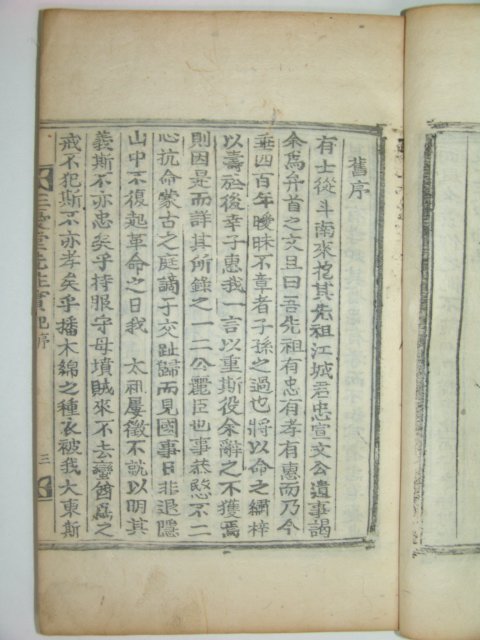 舊序
有士從斗南來抱其先祖江城君忠宣文公遺事謁
余爲弁首之文且曰吾先祖有忠有孝有惠而乃今
垂四百年曖昧不章者子孫之過也將以命之繡梓
以壽於後幸子惠我一言以重斯役余辭之不獲焉
則因是而詳其所錄之一二公麗臣也事恭愍不二
心抗命蒙古之庭謫于交趾歸而見國事日非退隱
山中不復起革命之日我 太祖屢徵不就以明其
義斯不亦忠矣乎持服守母墳賊來不去蠻酋爲之
戒不犯斯不亦孝矣乎播木綿之種衣被我大東斯
三憂堂先生實記序 三